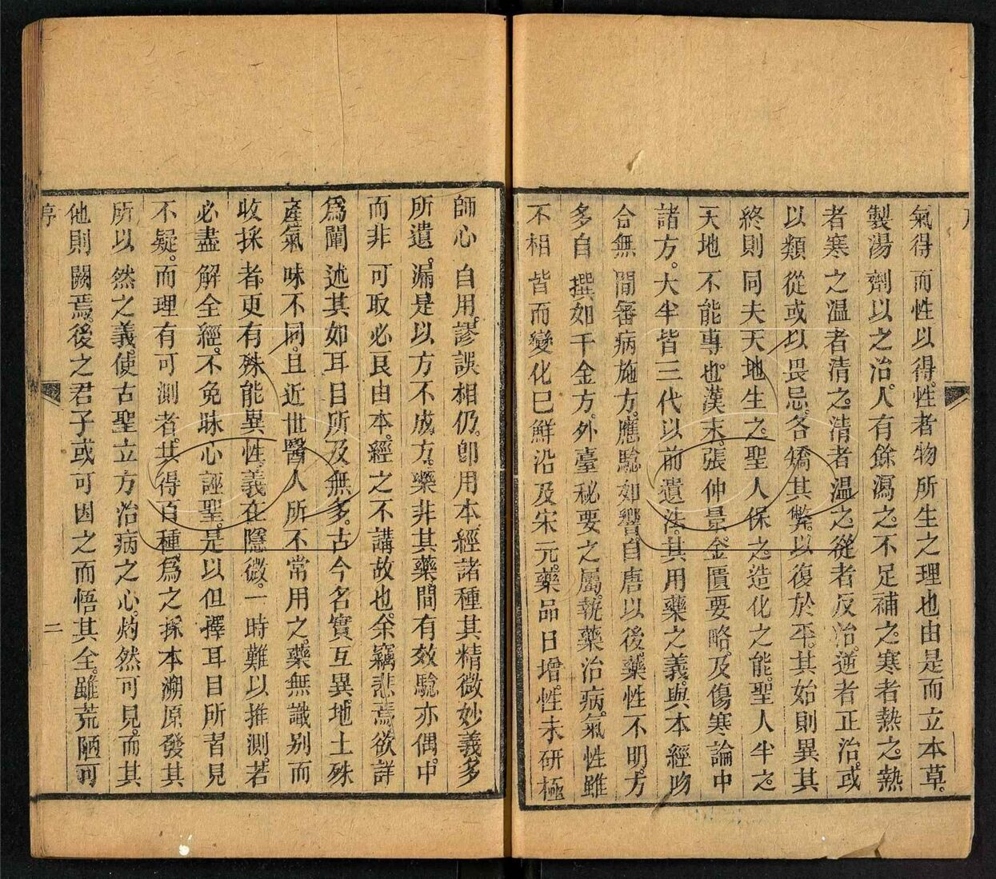 氣得而性以得。性者物所生之理也由是而立本草。
製湯劑以之治。人有餘瀉之。不足補之。寒者熱之。熱
者寒之。溫者清之。清者溫之。從者反治。逆者正治。或
以類從或以畏忌。各矯其弊。以復於平。其始則異其
終則同夫天地生之。聖人保之。造化之能。聖人半之。
天地不能專也。漢末張仲景金匱要略。及傷寒論中
諸方。大半皆三代以前遺法。其用藥之義。與本經吻
合無間。審病施方。應驗如響。自唐以後藥性不明。方
多自撰如千金方。外臺秘要之屬。執藥治病。氣性雖
不相背而變化已鮮沿及宋元。藥品日增性未研極
師心自用。謬誤相仍。卽用本經諸種其精微妙義多
所遺漏。是以方不成方。藥非其藥間有效驗亦偶。中
而非可取必良由本經之不講故也。余竊悲焉。欲詳
爲闡述其如耳目所及無多。古今名實互異。地土殊
產氣味不同。且近世醫人所不常用之藥無識别而
收採者。更有殊能異性。義在隱微。一時難以推測。若
必盡解全經。不免昧心誣聖。是以但擇耳目所習見
不疑。而理有可測者。共得百種。爲之探本溯原發其
所以然之義。使古聖立方治病之心。灼然可見。而其
他則闕焉。後之君子或可因之而悟其全。雖荒陋可
序
二